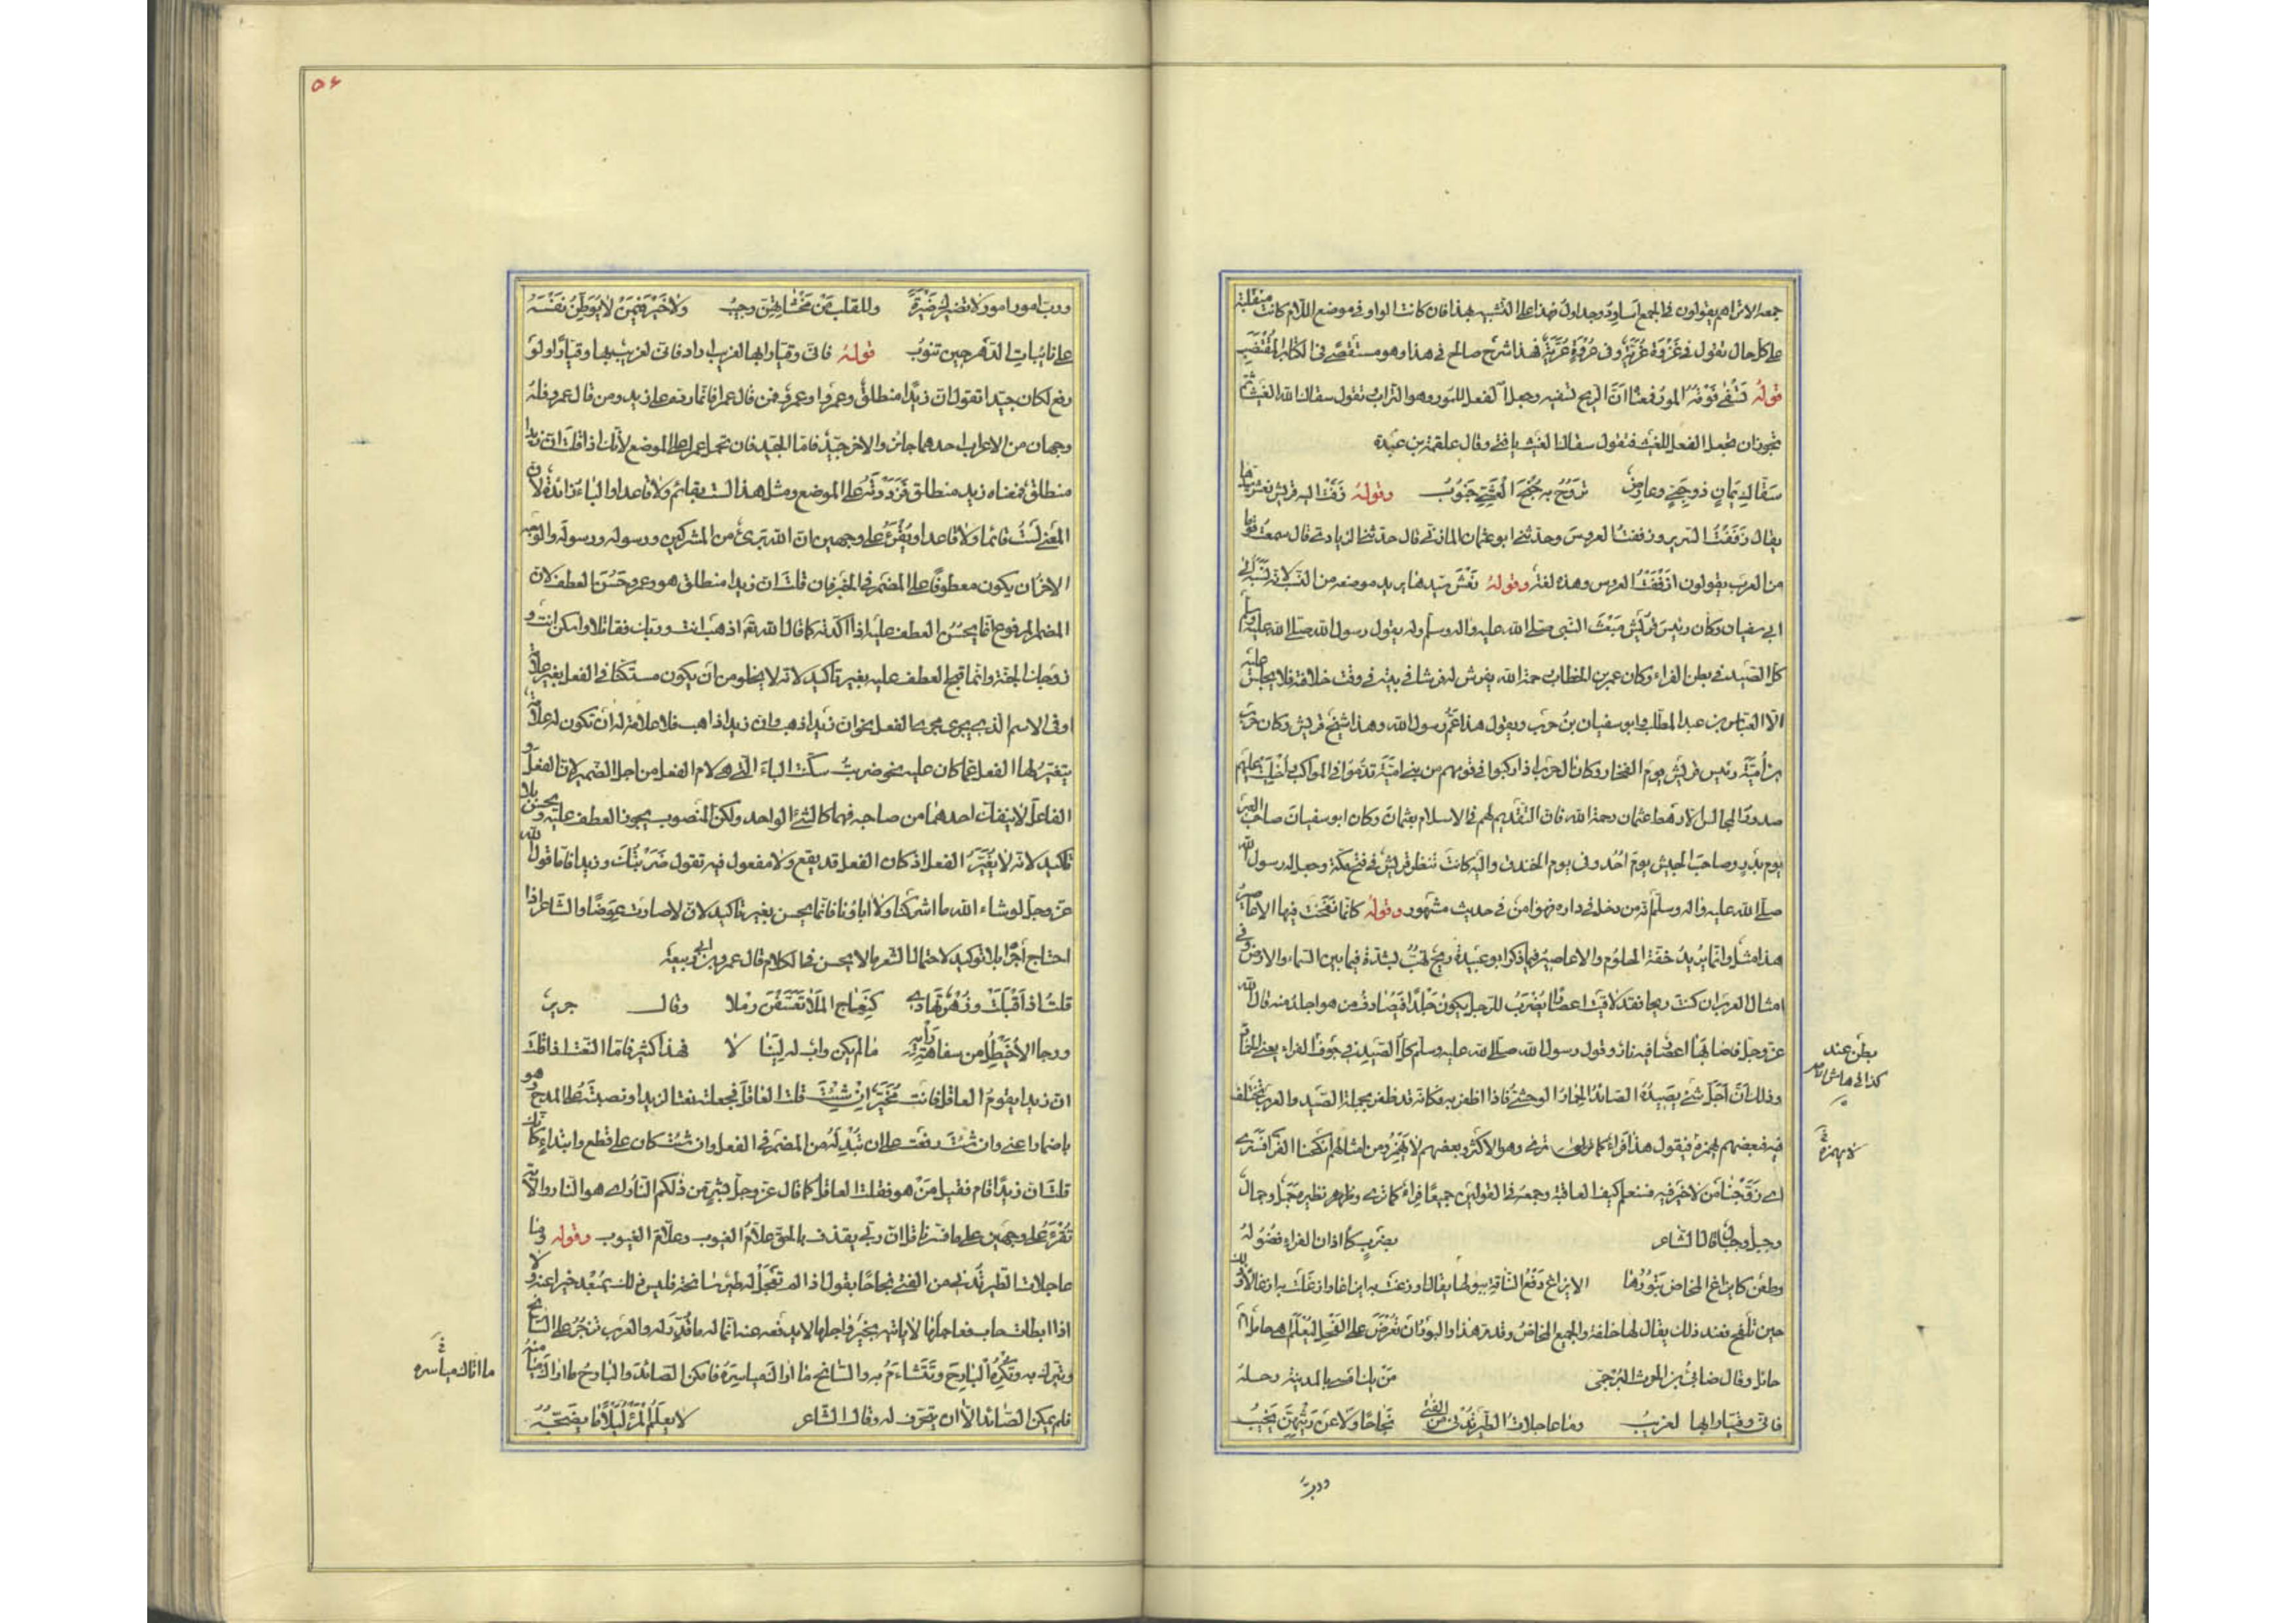 جمعه الا تراهم يقولون فى الجمع اساود وجداول فهذا على التشبيه بهذا فان كانت الواو فى موضع اللام كانت منقلبة
على كل حال تقول فى غزوة غزيّة وفى عروة عريّة فهذا شرح صالح فى هذا وهو مستقصى فى الكتاب المقتضب
قوله تسفى فوقه المور فمعناه ان الريح تسفيه وجعل الفعل للمور وهو التراب تقول سقاك الله الغيث ثم
يجوز ان تجعل الفعل للغيث فتقول سقاك الغيث يا فتى وقال علقمة بن عبدة
سقاك يمان ذو حبى وعارض تروح به جنح العشى جنوب وقوله زفت اليه قريش نعش سيدها
يقال زففت السرير وزففت العروس وحدثنى ابو عثمان المازنى قال حدثنى الزيادى قال سمعت قوما
من العرب يقولون ازففت العروس وهذه لغة وقوله نعش سيدها يريد موضعه من النسب لانه نسبة الى
ابى سفيان وكان رئيس قريش مبعث النبى صلى الله عليه واله وسلم وله يقول رسول الله صلى الله عليه وسلم
كل الصيد فى بطن الفراء وكان عمر بن الخطاب رحمة الله يفرش له فرشا فى بيته فى وقت خلافته فلا يجلس عليه
الا العباس بن عبد المطلب وابو سفيان بن حرب ويقول هذا عم رسول الله وهذا شيخ قريش وكان حرب
بن امية رئيس قريش يوم الفخار وكان ال حرب اذا ركبوا فى قومهم من بنى امية قدموا فى المواكب واخليت لهم
صدور المجالس الا رهط عثمان رحمة الله فان التقديم لهم فى الاسلام بعثمان وكان ابو سفيان صاحب العير
يوم بدر وصاحب الجيش يوم احد وفى يوم الخندق واليه كانت تنظر قريش فى فتح مكة وجعل له رسول الله
صلى الله عليه واله وسلم انه من دخل فى داره فهو امن فى حديث مشهور وقوله كانما نفخت فيها الاعاصير
هذا مثل وانما يريد خفة الحلوم والاعاصير فيما ذكر ابو عبيدة ريح تهب بشدة فيما بين السماء والارض وفى
امثال العرب ان كنت ريحا فقد لاقيت اعصارا يضرب للرجل يكون جلدا فيصادف من هو اجلد منه قال الله
عز وجل فاصابها اعصار فيه نار وقول رسول الله صلى الله عليه وسلم كل الصيد فى جوف الفراء يعنى الحمار
وذلك ان اجل شئ يصيده الصائد الحمار الوحشى فاذا ظفر به فكانه قد ظفر بجملة الصيد والعرب تختلف
فيه فبعضهم يهمزه فيقول هذا فراء كما ترى وهو الاكثر وبعضهم لا يهمز ومن امثالهم انكحنا الفرا فسنرى
اى زوجنا من لا خير فيه فسنعلم كيف العاقبة وجمعه فى القولين جميعا فراء كما ترى ونظيره جمل وجمال
وجبل وجبال قال الشاعر بضرب كاذان الفراء فضوله
وطعن كايزاغ المخاض تبورها الايزاغ دفع الناقة ببولها يقال اوزغت به ايزاغا وازغلت به ازغالا وذلك
حين تلقح فعند ذلك يقال لها خلفة وللجميع المخاض وقد مر هذا والبور ان تعرض على الفحل ليعلم اهى حامل ام
حائل وقال ضابئ بن الحارث البرجمى من يك امسى بالمدينة رحله
فانى وقيارا بها لغريب وما عاجلات الطير تدنى من الفتى نجاحا ولا عن ريثهن يخيب
بطن عند
كذا فى هامش الاصل
لا يهمزه
ورب
۵۶
ورب امور امور لا تضيرك ضيرة وللقلب من مخشاتهن وجيب ولا خير فيمن لا يوطن نفسه
على نائبات الدهر حين تنوب قوله فانى وقيارا بها لغريب اراد فانى لغريب بها وقيارا ولو
رفع لكان جيدا تقول ان زيدا منطلق وعمرا وعمرو فمن قال عمرا فانما رده على زيد ومن قال عمرو فله
وجهان من الاعراب احدهما جائز والاخر جيد فاما الجيد فان تحمل عمرا على الموضع لانك اذا قلت ان زيدا
منطلق فمعناه زيد منطلق فرددته على الموضع ومثل هذا لست بقائم ولا قاعدا والباء زائدة لان
المعنى لست قائما ولا قاعدا ويقرء على وجهين ان الله برئ من المشركين ورسوله ورسوله والوجه
الاخر ان يكون معطوفا على المضمر فى الخبر فان قلت ان زيدا منطلق هو وعمرو حسن العطف لان
المضمر المرفوع انما يحسن العطف عليه اذا اكدته كما قال الله تعالى اذهب انت وربك فقاتلا واسكن انت و
زوجك الجنة وانما قبح العطف عليه بغير تاكيد لانه لا يخلو من ان يكون مستكنا فى الفعل بغير علامة
او فى الاسم الذى يجرى مجرى الفعل نحو ان زيدا ذهب وان زيدا ذاهب فلا علامة له او ان تكون له علامة
يتغير لها الفعل عما كان عليه نحو ضربت سكنت الباء التى هى لام الفعل من اجل الضمير لان الفعل و
الفاعل لا ينفك احدهما من صاحبه فهما كالشئ الواحد ولكن المنصوب يجوز العطف عليه ويحسن بلا
تاكيد لانه لا يغير الفعل اذ كان الفعل قد يقع ولا مفعول فيه تقول ضربتك وزيدا فاما قول الله
عز وجل لو شاء الله ما اشركنا ولا اباؤنا فانما يحسن بغير تاكيد لان لا صارت عوضا والشاعر اذا
احتاج اجراه بلا توكيد لاحتمال الشعر ما لا يحسن فى الكلام قال عمر بن ابى ربيعة
قلت اذ اقبلت وزهر تهادى كنعاج الملا تعسفن رملا وقال جرير
ورجا الاخيطل من سفاهة رايه ما لم يكن واب له لينالا فهذا كثير فاما النعت اذا قلت
ان زيدا يقوم العاقل فانت مخير ان شئت قلت العاقل فجعلته نعتا لزيد او نصبته على المدح وهو
باضمار اعنى وان شئت رفعت على ان تبدله من المضمر فى الفعل وان شئت كان على قطع وابتداء كانك
قلت ان زيدا قام فقيل من هو فقلت العاقل كما قال عز وجل بشر من ذلكم النار اى هو النار والاية
تقرء على وجهين على ما فسرنا قل ان ربى يقذف بالحق علام الغيوب وعلام الغيوب وقوله وما
عاجلات الطير تدنى من الفتى نجاحا يقول اذا لم تعجل له طير سانحة فليس ذلك بمبعد خيرا عنه ولا
اذا ابطات خاب فعاجلها لا ياتيه بخير واجلها لا يدفعه عنه انما له ما قدر له والعرب تزجر على السانح
وتتبرك به وتكره البارح وتتشاءم به والسانح ما اراك مياسره فامكن الصائد والبارح ما اراك ميامنه
فلم يمكن الصائد الا ان يتحرف له وقال الشاعر لا يعلم المرء ليلا ما يصبحه
ما اتاك مياسره